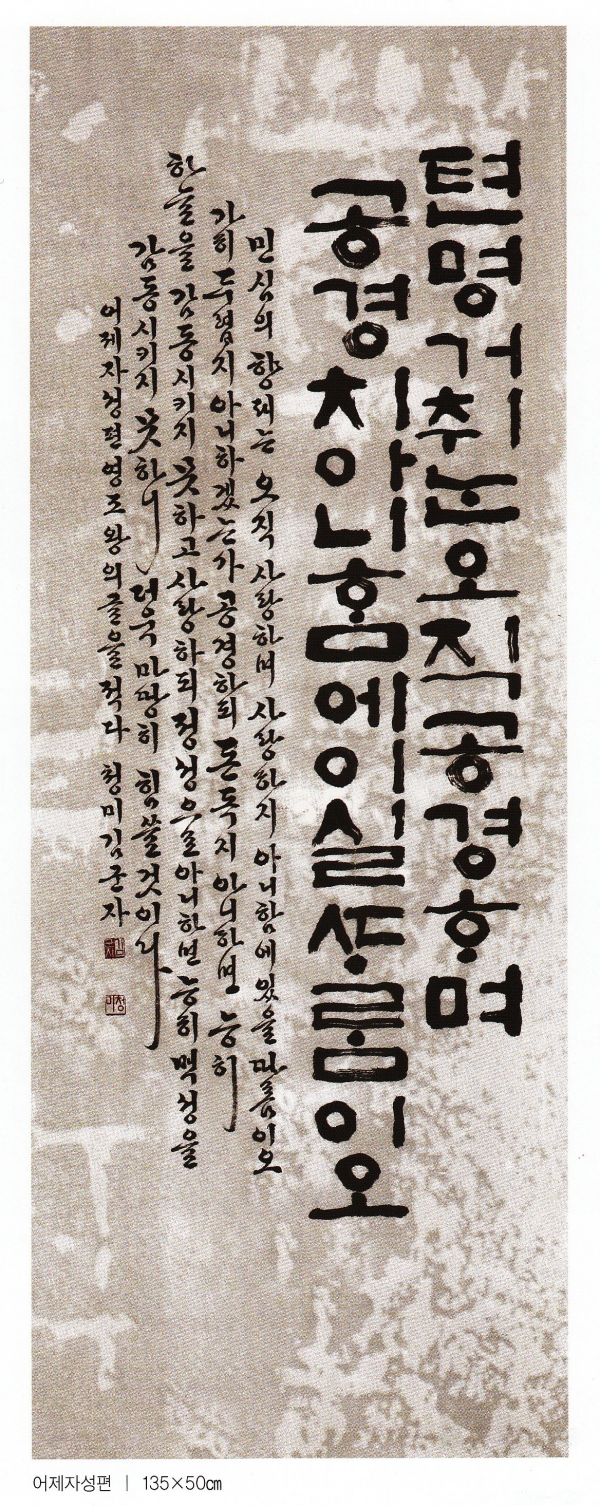 텬명거츄는오직공경하며
공경치아니홈에이실ᄯᆞ름이오
민심의 향배는 오직 사랑하며 사랑하지 아니함에 있을 따름이오
가히 두렵지 아니하겠는가 공경하되 돈독지 아니하면 능히
하늘을 감동시키지 못하고 사랑하되 정성으로 아니하면 능히 백성을
감동시키지 못하니 더욱 마땅히 힘쓸 것이니라
어제자성편 영조왕의 글을 적다 청미 김군자
어제자성편 | 135×50㎝